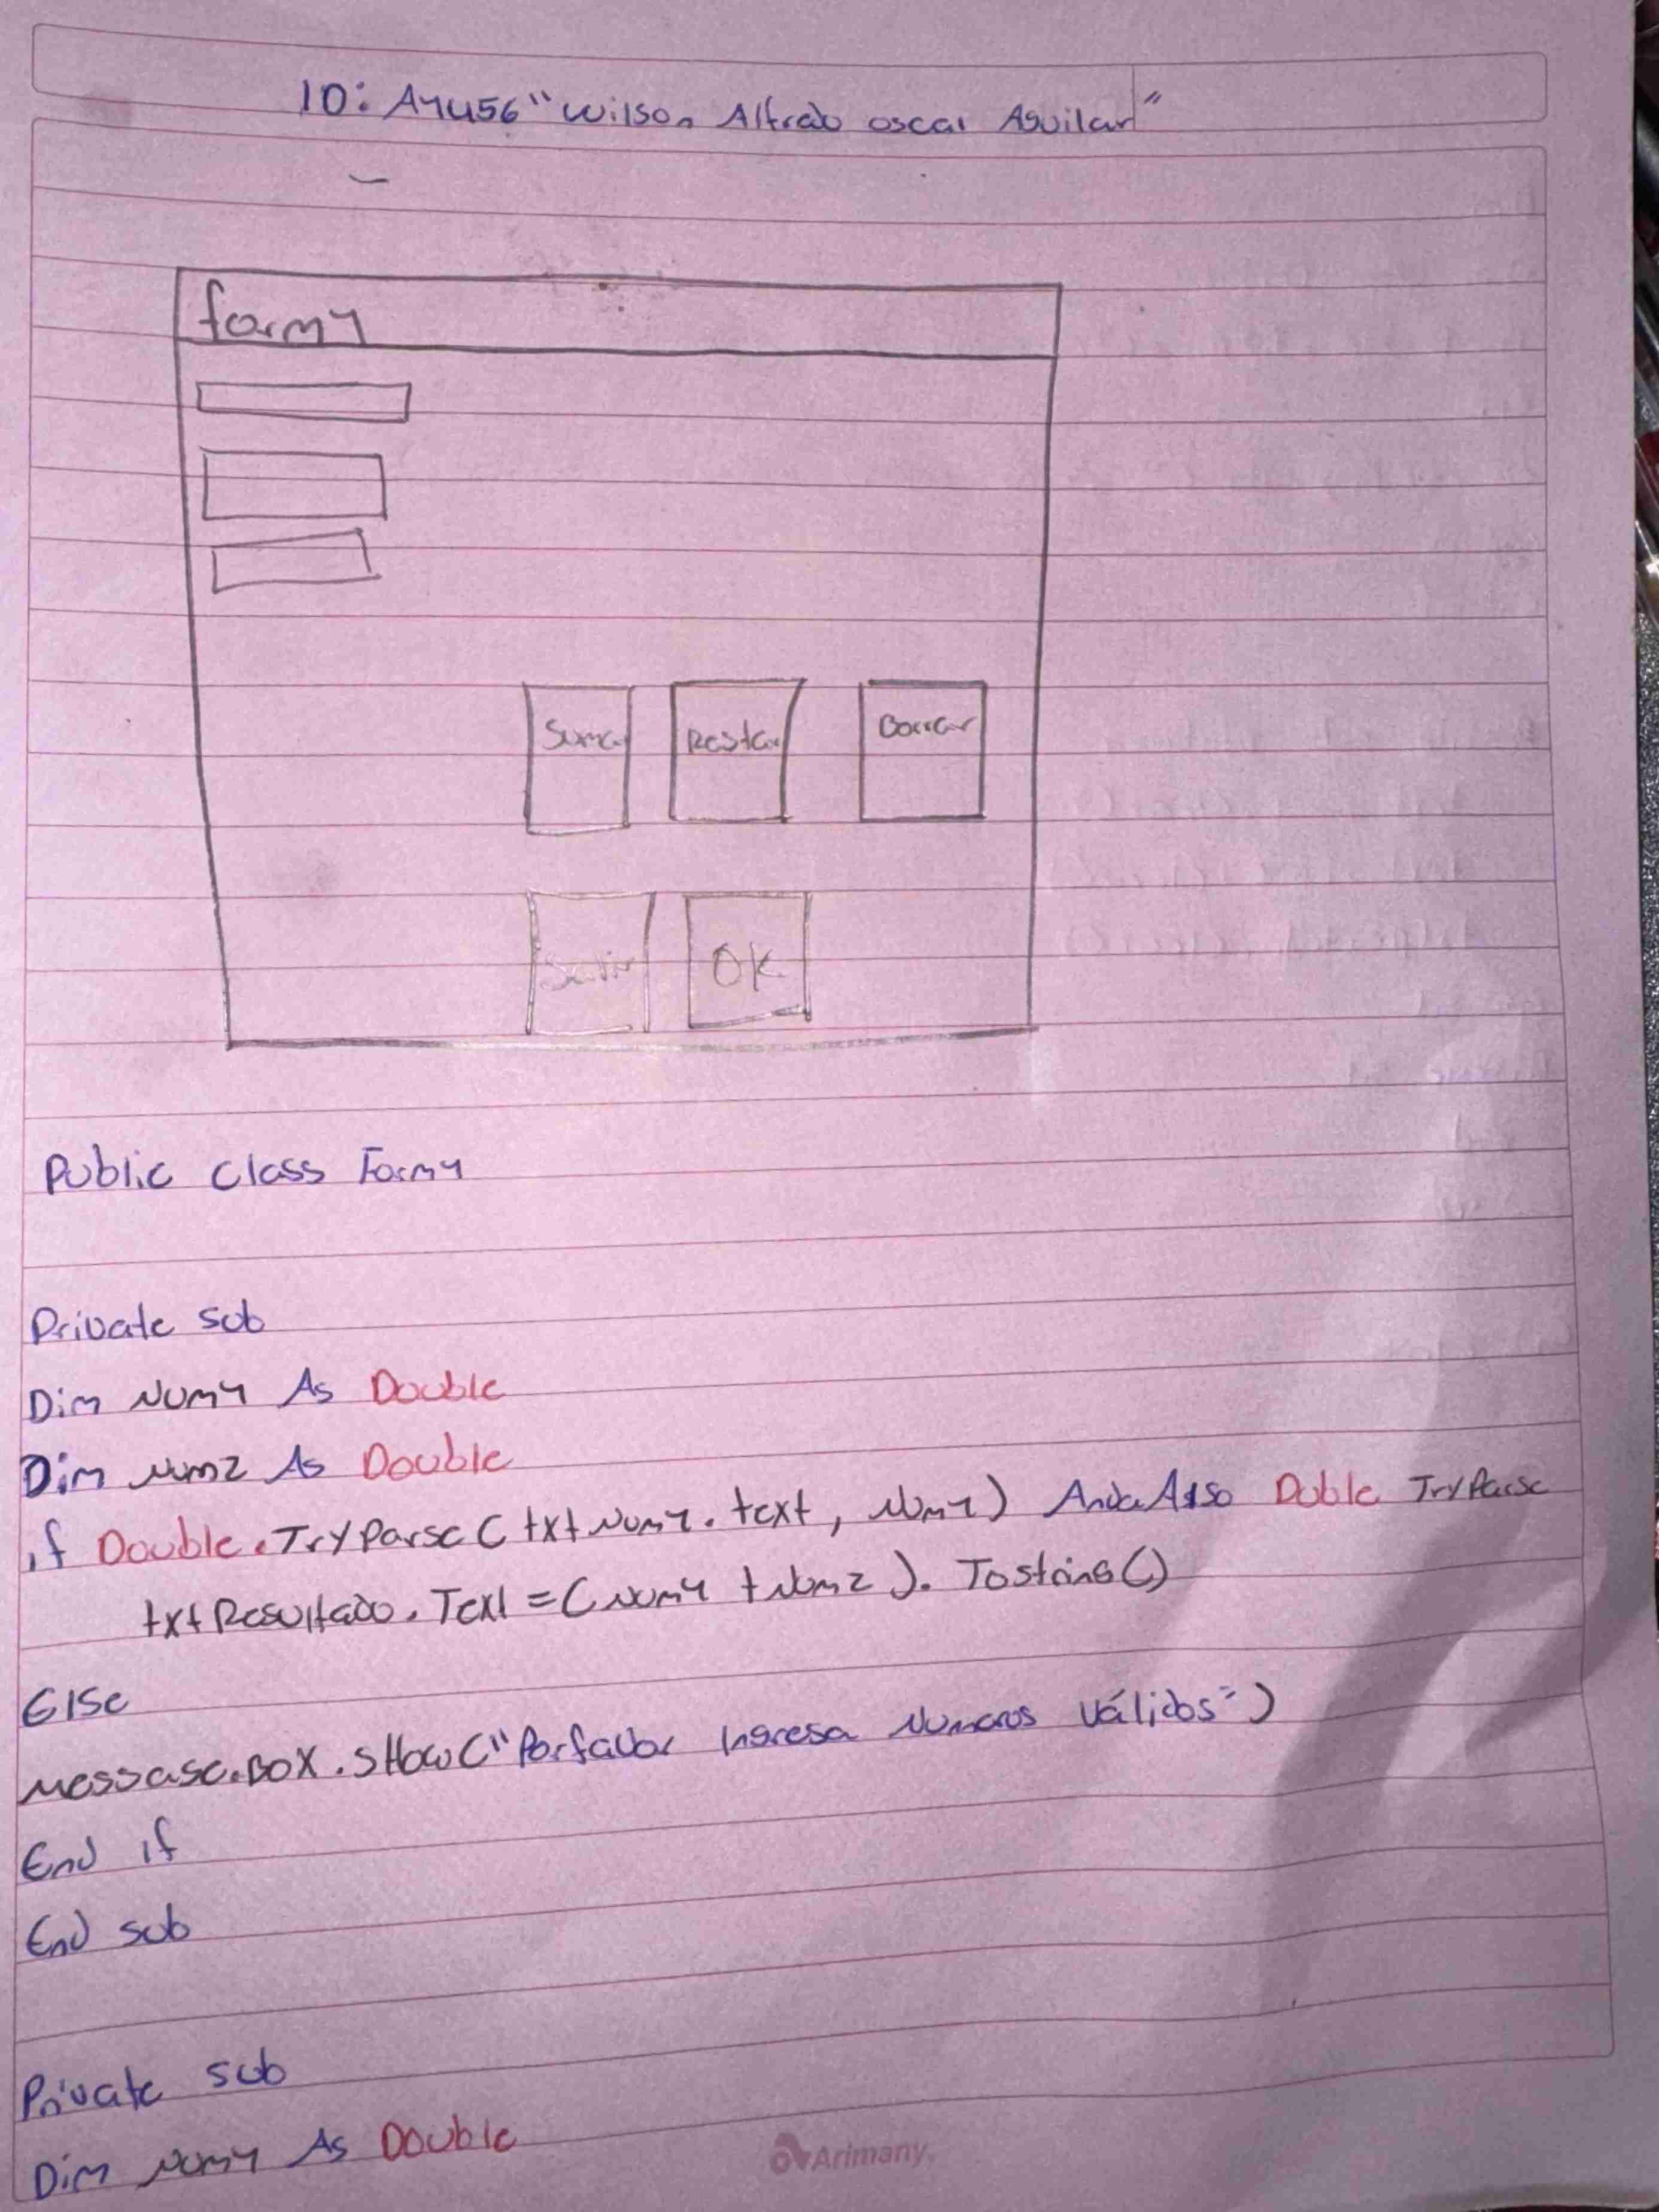 10: A1456 "Wilson Alfredo oscar Aguilar"
form1
Sumar Restar Borrar
Salir OK
Public class Form1
Private sub
Dim Num1 As Double
Dim Num2 As Double
if Double.TryParse(txtNum1.text, Num1) AndAlso Duble TryParse
txtResultado.Text=(Num1 +Num2). Tostring()
Else
Messase.Box.SHow("Porfavor Ingresa Numeros válidos")
End if
End sub
Private sub
Dim Num1 As Double
Arimany